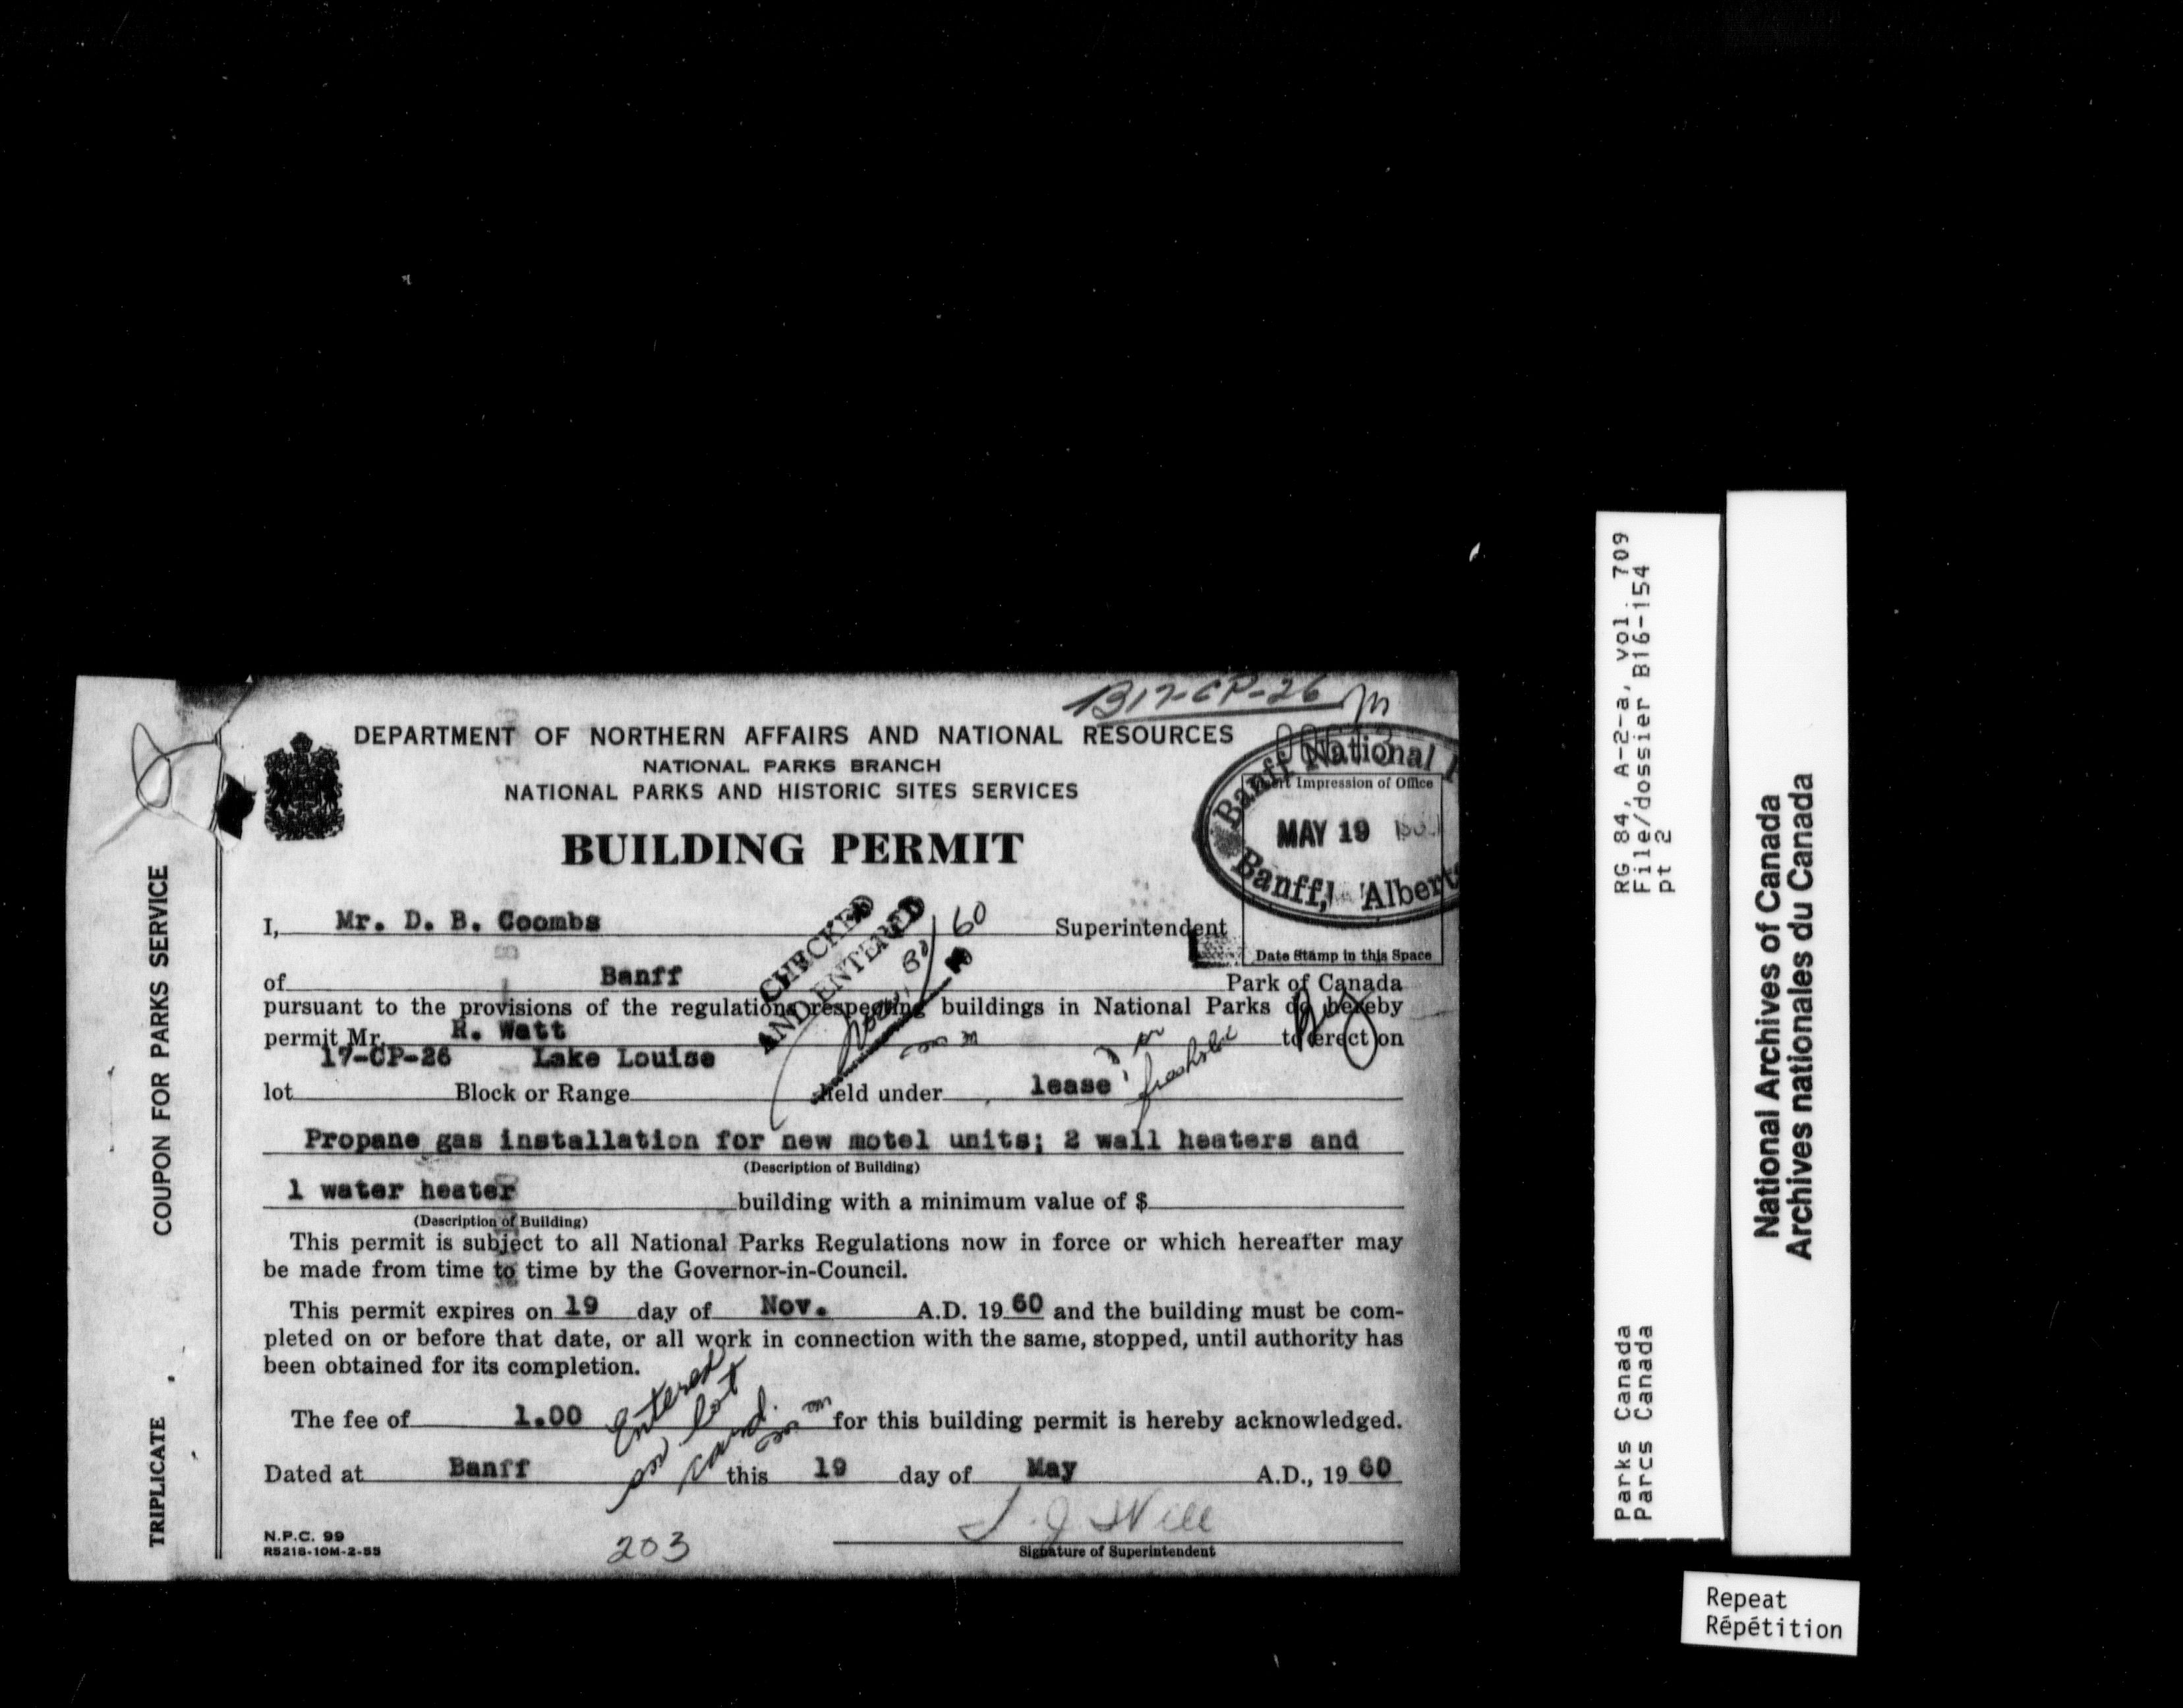 B17-CP-26
DEPARTMENT OF NORTHERN AFFAIRS AND NATIONAL RESOURCES
NATIONAL PARKS BRANCH
NATIONAL PARKS AND HISTORIC SITES SERVICES
BUILDING PERMIT
Banff National
Impression of Office
MAY 19
Banff, Alberta
Date Stamp in this Space
I, Mr. D. B. Coombs Superintendent
of Banff Park of Canada
CHECKED
AND ENTERED
60
pursuant to the provisions of the regulations respecting buildings in National Parks do hereby
permit Mr. R. Watt to erect on
17-CP-26 Lake Louise
lot Block or Range held under lease
Propane gas installation for new motel units; 2 wall heaters and
(Description of Building)
1 water heater building with a minimum value of $
(Description of Building)
This permit is subject to all National Parks Regulations now in force or which hereafter may
be made from time to time by the Governor-in-Council.
This permit expires on 19 day of Nov. A.D. 19 60 and the building must be com-
pleted on or before that date, or all work in connection with the same, stopped, until authority has
been obtained for its completion.
The fee of 1.00 for this building permit is hereby acknowledged.
Entered
on lot
card.
Dated at Banff this 19 day of May A.D., 19 60
Signature of Superintendent
N.P.C. 99
R5218-10M-2-55
203
COUPON FOR PARKS SERVICE
TRIPLICATE
RG 84, A-2-a, vol. 709
File/dossier B16-154
pt 2
Parks Canada
Parcs Canada
National Archives of Canada
Archives nationales du Canada
Repeat
Répétition